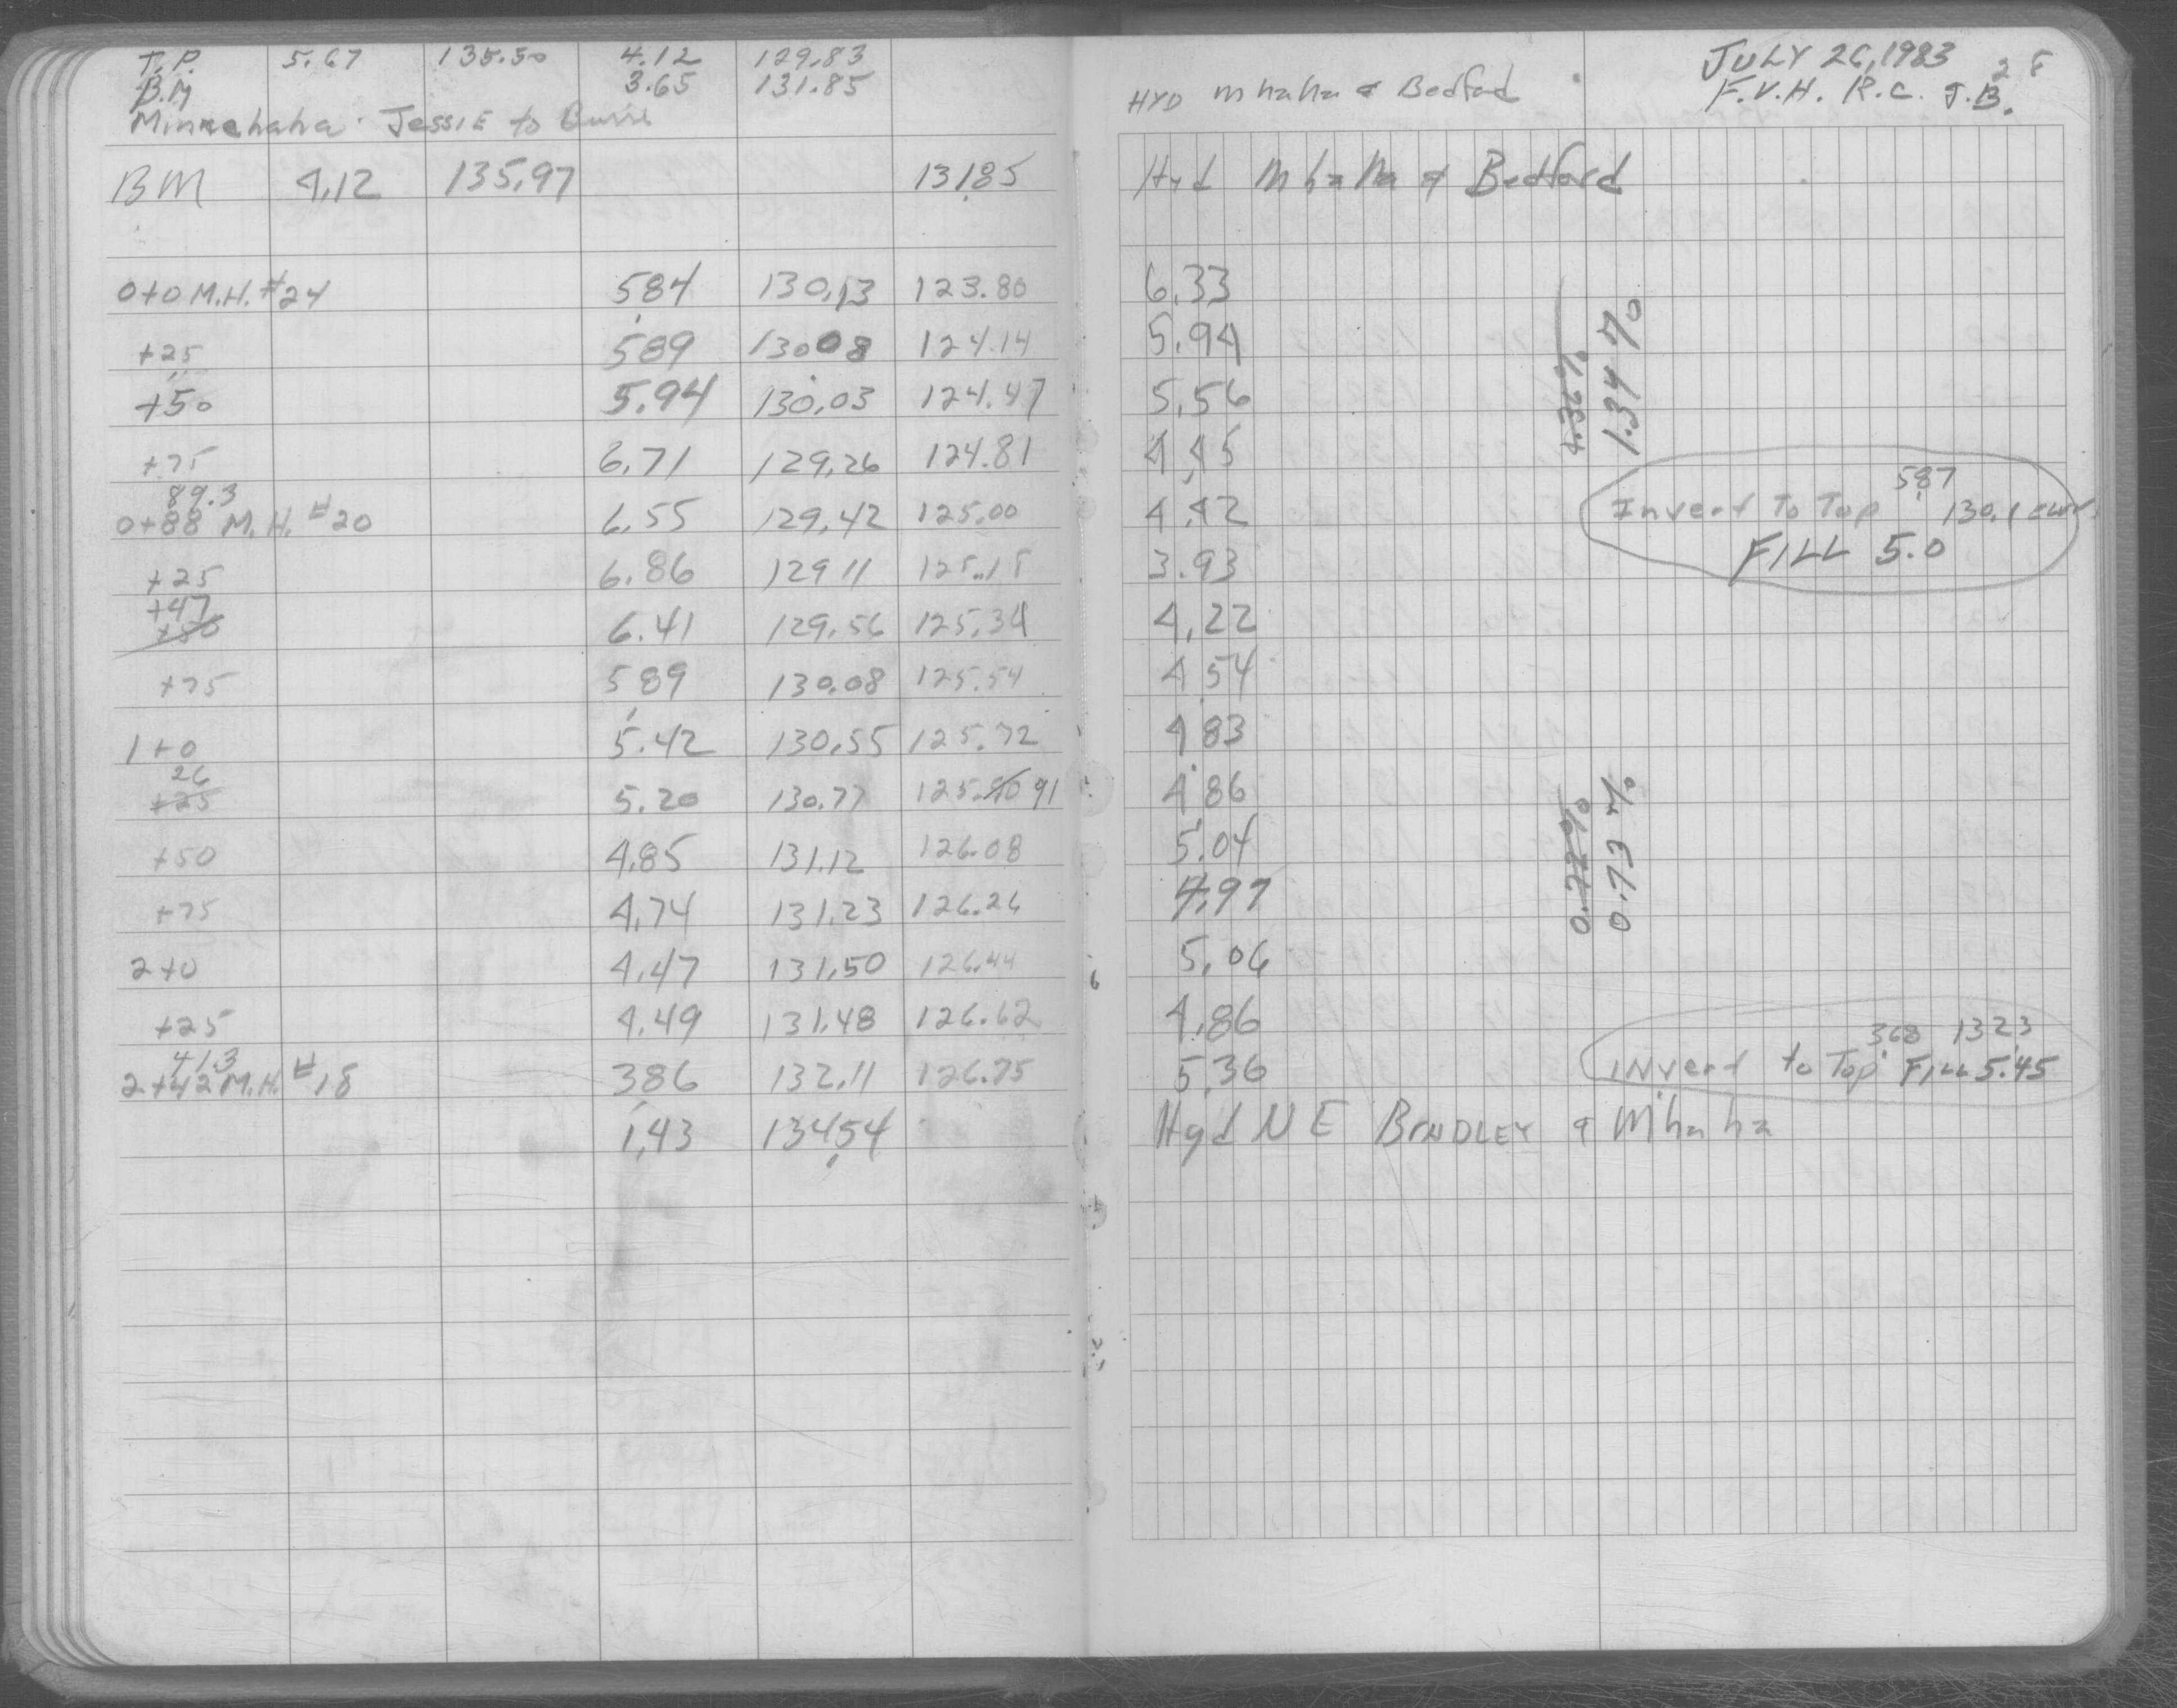 T.P. 5.67 135.50 4.12 129.83
B.M 3.65 131.85
HYD mhaha & Bedford
JULY 26, 1983
28
F.V.H. R.C. J.B.
Minnehaha Jessie to
BM 4.12 135.97 131.85 Hyd mhaha & Bedford
0+0 M.H. #24 5.84 130.13 123.80 6.33
+25 5.89 130.08 124.14 5.94
+50 5.94 130.03 124.47 5.56
1.34 %
+75 6.71 129.26 124.81 4.45
89.3
0+88 M.H. #20 6.55 129.42 125.00 4.42
5.87
Invert To Top 130.1
FILL 5.0
+25 6.86 129.11 125.15 3.93
+47
+50 6.41 129.56 125.34 4.22
+75 5.89 130.08 125.54 4.54
1+0 5.42 130.55 125.72 4.83
26
+25 5.20 130.77 125.90 91 4.86
0.22%
0.73 %
+50 4.85 131.12 126.08 5.04
+75 4.74 131.23 126.26 4.97
2+0 4.47 131.50 126.44 5.06
+25 4.49 131.48 126.62 4.86
41.3
2+42 M.H. #18 3.86 132.11 126.75 5.36
3.68 132.3
INvert to Top FILL 5.45
1.43 134.54 Hyd N E BRADLEY & Mhaha